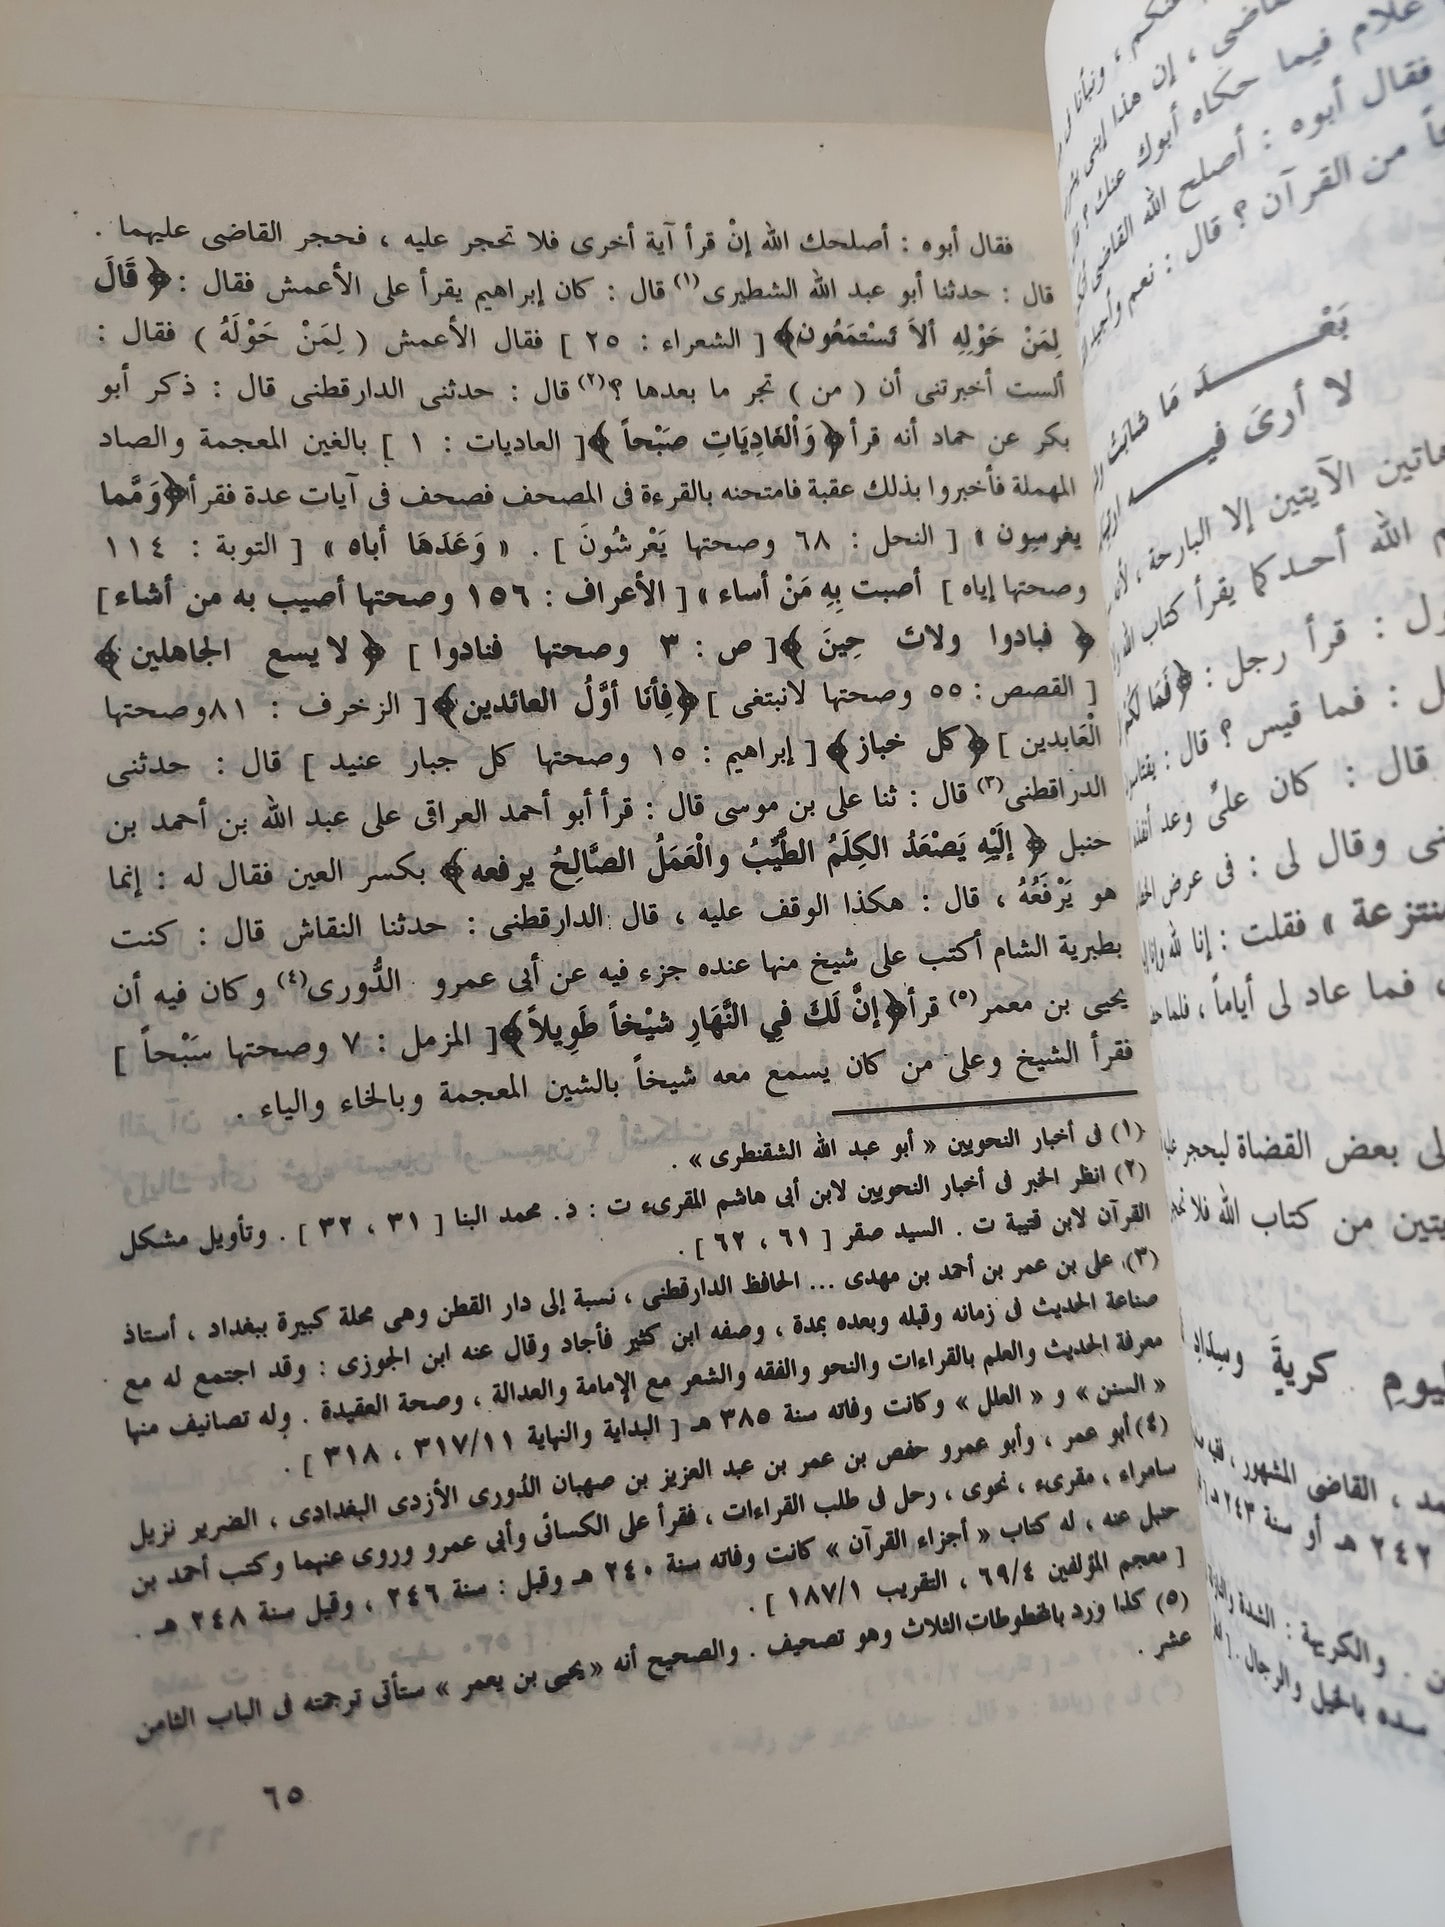 فقال أبوه : أصلحك الله إنْ قرأ آية أخرى فلا تحجر عليه ، فحجر القاضى عليهما .
قال : حدثنا أبو عبد الله الشطيرى(١) قال : كان إبراهيم يقرأ على الأعمش فقال : ﴿ قَالَ
لِمَنْ حَوْلِهِ ألاَ تَسْتمَعُون﴾ [ الشعراء : ٢٥ ] فقال الأعمش ( لِمَنْ حَوْلَهُ ) فقال :
ألست أخبرتنى أن ( من ) تجر ما بعدها ؟(٢) قال : حدثنى الدارقطنى قال : ذكر أبو
بكر عن حماد أنه قرأ ﴿ وَالغَادِيَاتِ صَبْحاً ﴾ [ العاديات : ١ ] بالغين المعجمة والصاد
المهملة فأخبروا بذلك عقبة فامتحنه بالقرءة فى المصحف فصحف فى آيات عدة فقرأ ﴿وَمَّما
يغرسون » [ النحل : ٦٨ وصحتها يَعْرشُونَ ] . « وَعَدَهَا أباه » [ التوبة : ١١٤
وصحتها إياه ] أصبت بِهِ مَنْ أساء » [ الأعراف : ١٥٦ وصحتها أصيب به من أشاء ]
﴿ فبادوا ولات حِينَ ﴾ [ ص : ٣ وصحتها فنادوا ] ﴿ لا يسع الجاهلين ﴾
[ القصص : ٥٥ وصحتها لانبتغى ] ﴿فَأنَا أوَّلُ العائدين﴾ [ الزخرف : ٨١ وصحتها
الْعَابدين ] ﴿كل خباز﴾ [ إبراهيم : ١٥ وصحتها كل جبار عنيد ] قال : حدثنى
الدراقطنى(٣) قال : ثنا على بن موسى قال : قرأ أبو أحمد العراقى على عبد الله بن أحمد بن
حنبل ﴿ إلَيْهِ يَصْعَدُ الكِلَمُ الطَّيِّبُ والْعَمَلُ الصَّالِحُ يرفعه﴾ بكسر العين فقال له : إنما
هو يَرْفَعُهُ ، قال : هكذا الوقف عليه ، قال الدارقطنى : حدثنا النقاش قال : كنت
بطبرية الشام أكتب على شيخ منها عنده جزء فيه عن أبى عمرو الدُّورى(٤) وكان فيه أن
يحيى بن معمر(٥) قرأ ﴿إنَّ لَكَ فِي النَّهَارِ شيْخاً طَوِيلاً﴾ [ المزمل : ٧ وصحتها سَبْحاً ]
فقرأ الشيخ وعلى من كان يسمع معه شيخاً بالشين المعجمة وبالخاء والياء .
(١) فى أخبار النحويين « أبو عبد الله الشقنطرى » .
(٢) انظر الخبر فى أخبار النحويين لابن أبى هاشم المقرىء ت : د. محمد البنا [ ٣١ ، ٣٢ ] . وتأويل مشكل
القرآن لابن قتيبة ت . السيد صقر [ ٦١ ، ٦٢ ] .
(٣) على بن عمر بن أحمد بن مهدى ... الحافظ الدارقطنى ، نسبة إلى دار القطن وهى محلة كبيرة ببغداد ، أستاذ
صناعة الحديث فى زمانه وقبله وبعده بمدة ، وصفه ابن كثير فأجاد وقال عنه ابن الجوزى : وقد اجتمع له مع
معرفة الحديث والعلم بالقراءات والنحو والفقه والشعر مع الإمامة والعدالة ، وصحة العقيدة . وله تصانيف منها
« السنن » و « العلل » وكانت وفاته سنة ٣٨٥ هـ [ البداية والنهاية ٣١٧/١١ ، ٣١٨ ] .
(٤) أبو عمر ، وأبو عمرو حفص بن عمر بن عبد العزيز بن صهبان الدورى الأزدى البغدادى ، الضرير نزيل
سامراء ، مقرىء ، نحوى ، رحل فى طلب القراءات ، فقرأ على الكسائى وأبى عمرو وروى عنهما وكتب أحمد بن
حنبل عنه ، له كتاب « أجزاء القرآن » كانت وفاته سنة ٢٤٠ هـ وقيل : سنة ٢٤٦ ، وقيل سنة ٢٤٨ هـ .
[ معجم المؤلفين ٦٩/٤ ، التقريب ١٨٧/١ ] .
(٥) كذا ورد بالمخطوطات الثلاث وهو تصحيف . والصحيح أنه « يحيى بن يعمر » ستأتى ترجمته فى الباب الثامن
عشر .
٦٥
علام فيما حكاه أبوك عنك ؟
فقال أبوه : أصلح الله القاضى
من القرآن ؟ قال : نعم وأجيد
بَعْدَ مَا شابَتْ
لا أرىَ فيه
هاتين الآيتين إلا البارحة ، لأن
الله أحدكما يقرأ كتاب الله
قرأ رجل : ﴿فَمَا لَكُم
: فما قيس ؟ قال : يقتاس
قال : كان علىّ وعد
وقال لى : فى عرض
منتزعة » فقلت : إنا لله وإنا
، فما عاد لى أياماً ، فلما
بعض القضاة ليحجر
من كتاب الله فلا تحجر
ليومِ كريهةٍ وسِدَادِ
، القاضى المشهور ،
٢٤٢ هـ أو سنة ٢٤٣ هـ
. والكريهة : الشدة
سده بالخيل والرجال . [